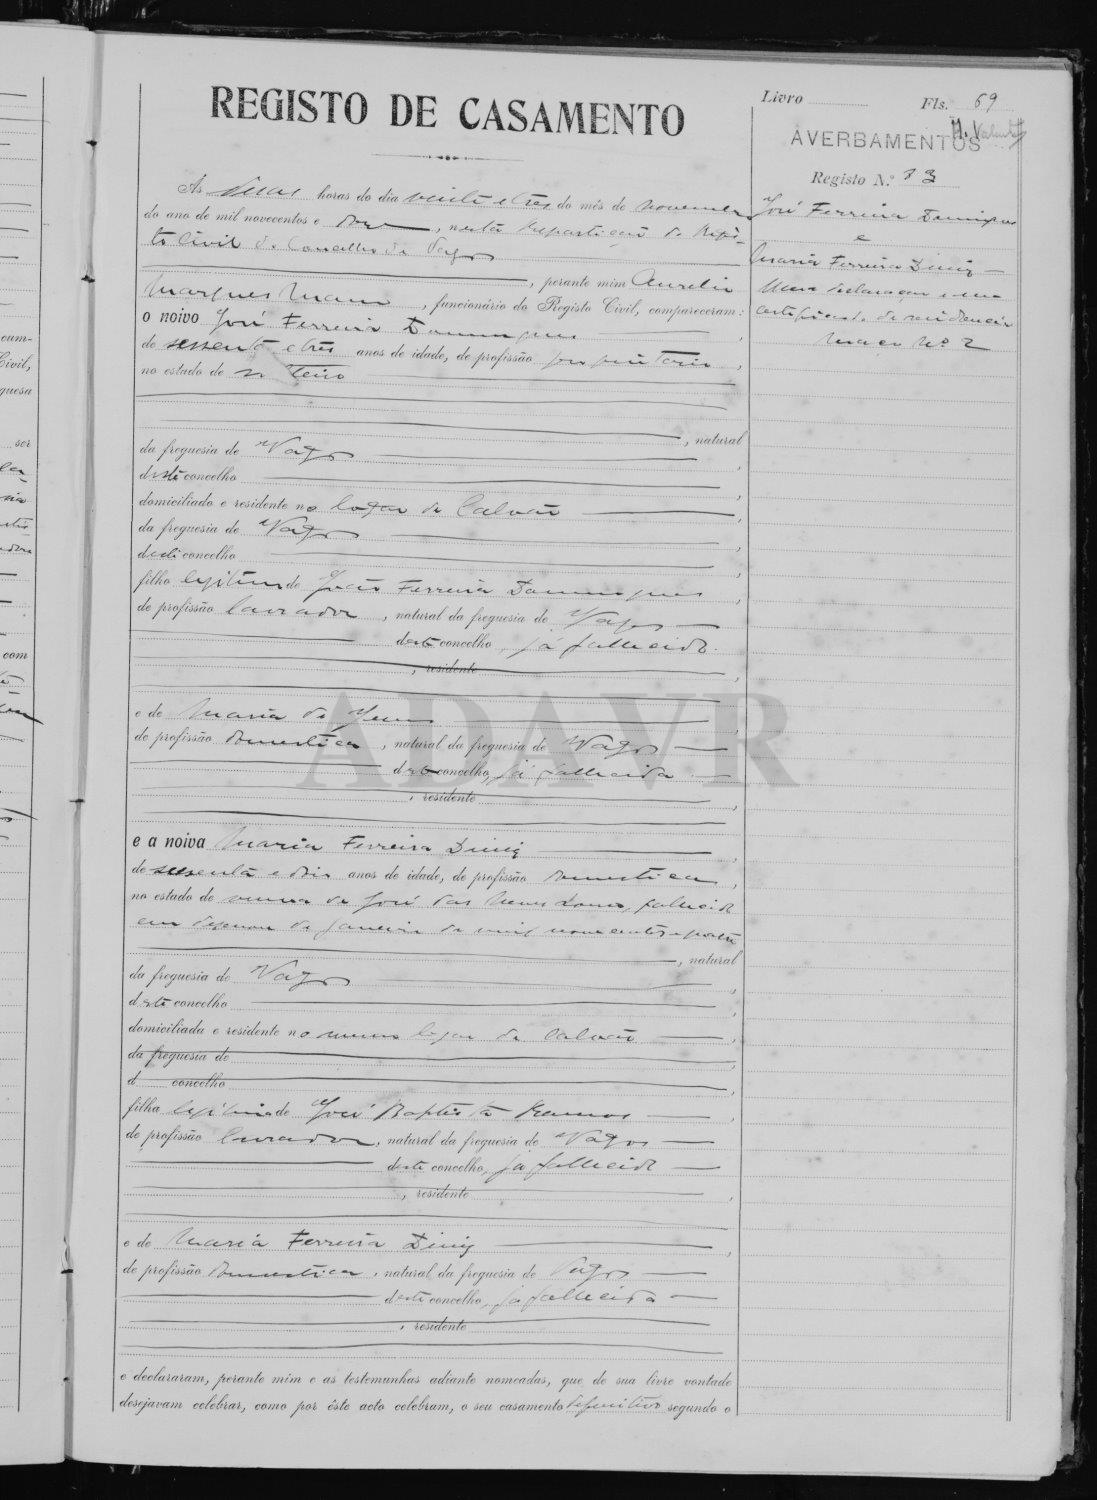 REGISTO DE CASAMENTO
Livro Fls. 69
AVERBAMENTOS
Registo N.º 13
José Ferreira Domingues
e
Maria Ferreira Diniz
Uma declaração e um
certificado de residencia
Maço Nº 2
Ás duas horas do dia vinte e tres do mês de novembro
do ano de mil novecentos e doze, nesta Repartição do Regis-
to Civil do Concelho de Vagos
, perante mim Aurelio
Marques Mano, funcionário do Registo Civil, compareceram:
o noivo José Ferreira Domingues
de sessenta e tres anos de idade, de profissão proprietario,
no estado de solteiro
, natural
da freguesia de Vagos,
deste concelho,
domiciliado e residente no logar de Calvão,
da freguesia de Vagos,
deste concelho,
filho legitimo de João Ferreira Domingues,
de profissão lavrador, natural da freguesia de Vagos
deste concelho, já fallecido.
, residente,
e de Maria de Jesus,
de profissão domestica, natural da freguesia de Vagos
deste concelho, já fallecida
, residente,
e a noiva Maria Ferreira Diniz,
de sessenta e dois anos de idade, de profissão domestica,
no estado de viuva de José das Neves, fallecido
em de Janeiro de mil novecentos e quatro
, natural
da freguesia de Vagos,
deste concelho,
domiciliada e residente no mesmo logar de Calvão,
da freguesia de,
d concelho,
filha legitima de José Baptista Ramos,
de profissão lavrador, natural da freguesia de Vagos
deste concelho, já fallecido
, residente,
e de Maria Ferreira Diniz,
de profissão domestica, natural da freguesia de Vagos
deste concelho, já fallecida
, residente
e declararam, perante mim e as testemunhas adiante nomeadas, que de sua livre vontade
desejavam celebrar, como por éste acto celebram, o seu casamento definitivo segundo o
ADAVR